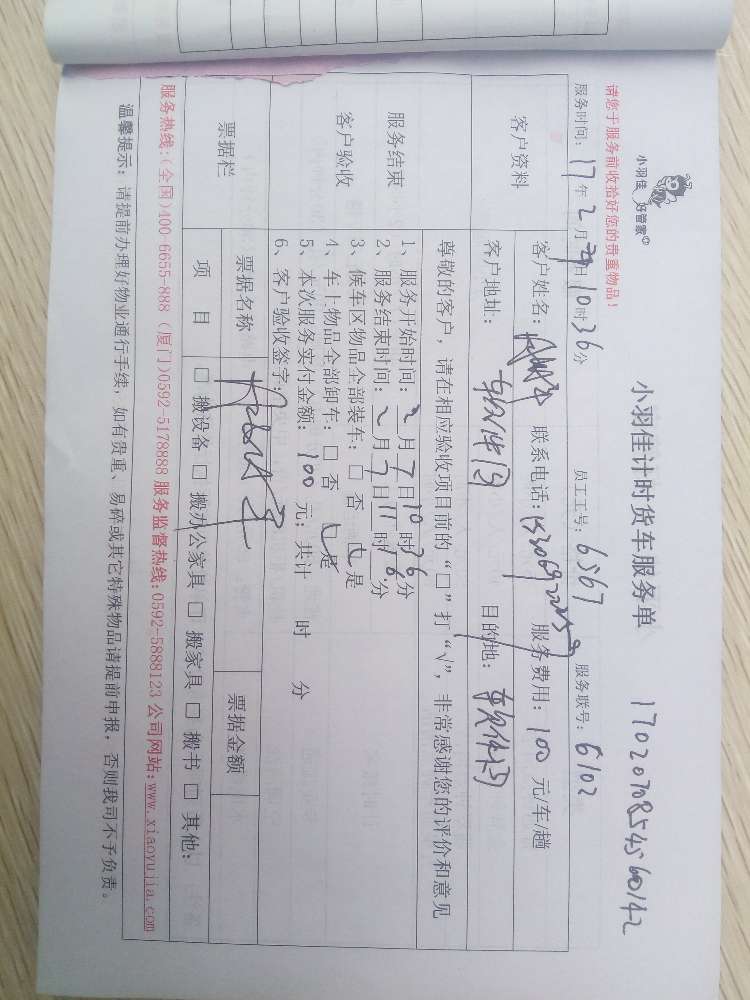 小羽佳 好管家
小羽佳计时货车服务单 17020708545560142
请您于服务前收拾好您的贵重物品！
服务时间：17年2月日10时36分 员工工号：6567 服务联号：6102
客户资料
客户姓名： 联系电话： 服务费用：100元/车/趟
客户地址： 目的地：
尊敬的客户，请在相应验收项目前的“□”打“√”，非常感谢您的评价和意见
服务结束
客户验收
1、服务开始时间：2月7日10时36分
2、服务结束时间：2月7日11时16分
3、候车区物品全部装车：□否 是
4、车上物品全部卸车：□否 是
5、本次服务实付金额：100元；共计 时 分
6、客户验收签字：
票据栏 票据名称 票据金额
项目 □搬设备 □搬办公家具 □搬家具 □搬书 □其他：
服务热线：(全国)400 6655 888 (厦门)0592-5178888 服务监督热线：0592-5888123 公司网站：www.xiaoyujia.com
温馨提示：请提前办理好物业通行手续，如有贵重、易碎或其它特殊物品请提前申报，否则我司不予负责。